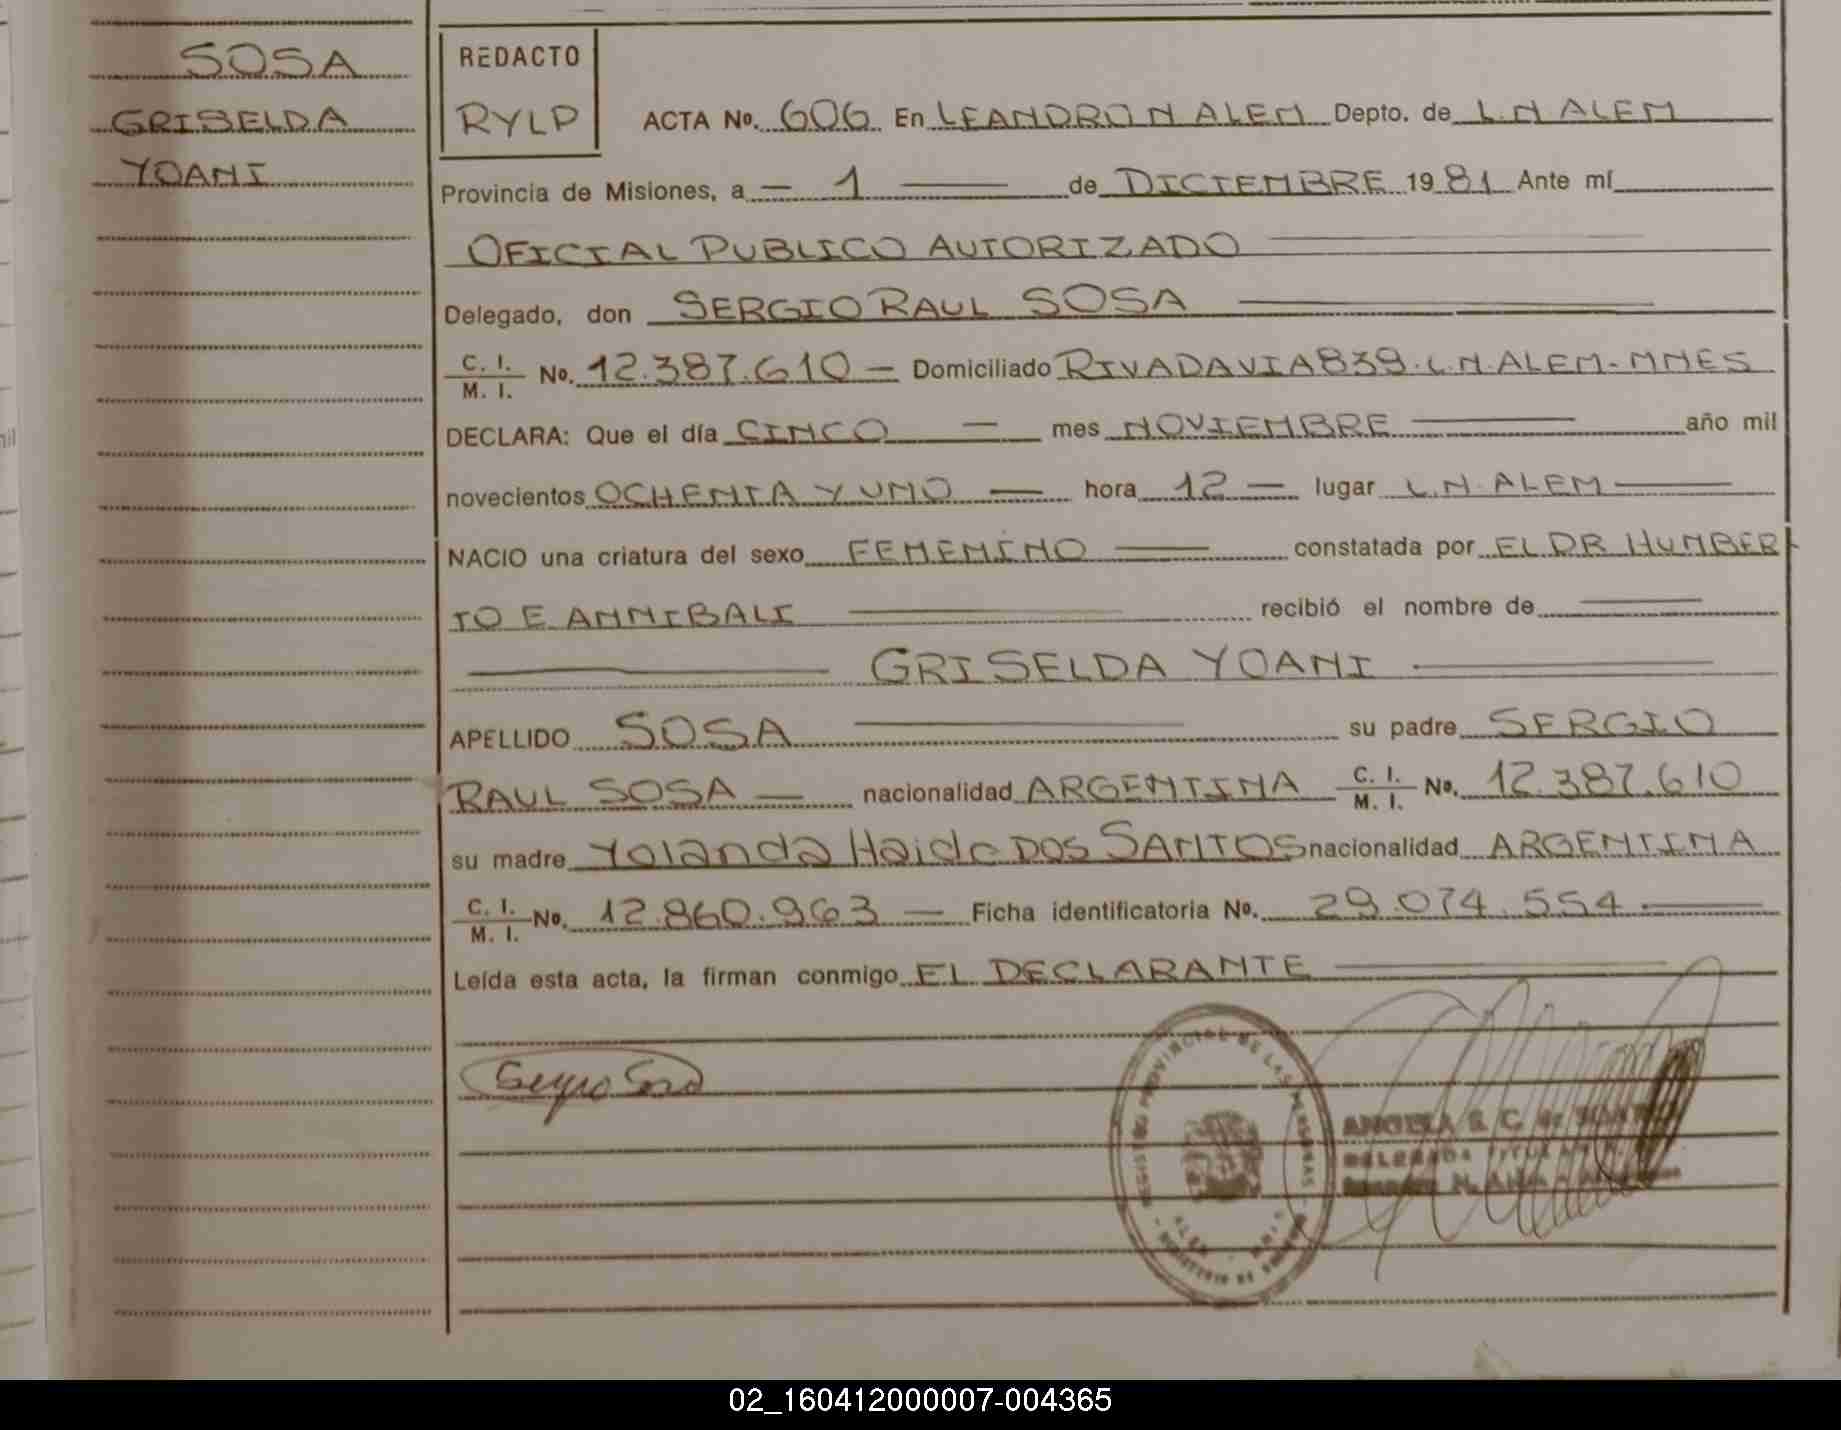 SOSA
GRISELDA
YOANI
REDACTO
RYLP
ACTA No. 606 En LEANDRO N ALEM Depto. de L.N ALEM
Provincia de Misiones, a — 1 — de DICIEMBRE 19 81 Ante mí
OFICIAL PUBLICO AUTORIZADO
Delegado, don SERGIO RAUL SOSA
C. I. M. I. No. 12.387.610 — Domiciliado RIVADAVIA 839. L.N.ALEM - MNES
DECLARA: Que el día CINCO — mes NOVIEMBRE — año mil
novecientos OCHENTA Y UNO — hora 12 — lugar L.N.ALEM —
NACIO una criatura del sexo FEMENINO — constatada por EL DR HUMBER
TO E ANNIBALI — recibió el nombre de —
GRISELDA YOANI
APELLIDO SOSA — su padre SERGIO
RAUL SOSA — nacionalidad ARGENTINA C. I. M. I. No. 12.387.610
su madre Yolanda Haide DOS SANTOS nacionalidad ARGENTINA
C. I. M. I. No. 12.860.963 — Ficha identificatoria No. 29.074.554 —
Leída esta acta, la firman conmigo EL DECLARANTE —
Sergio Sosa
REGISTRO PROVINCIAL DE LAS PERSONAS
ALEM
MINISTERIO DE
ANGELA S. C. de
DELEGADA TITULAR
N. Alem
02_160412000007-004365